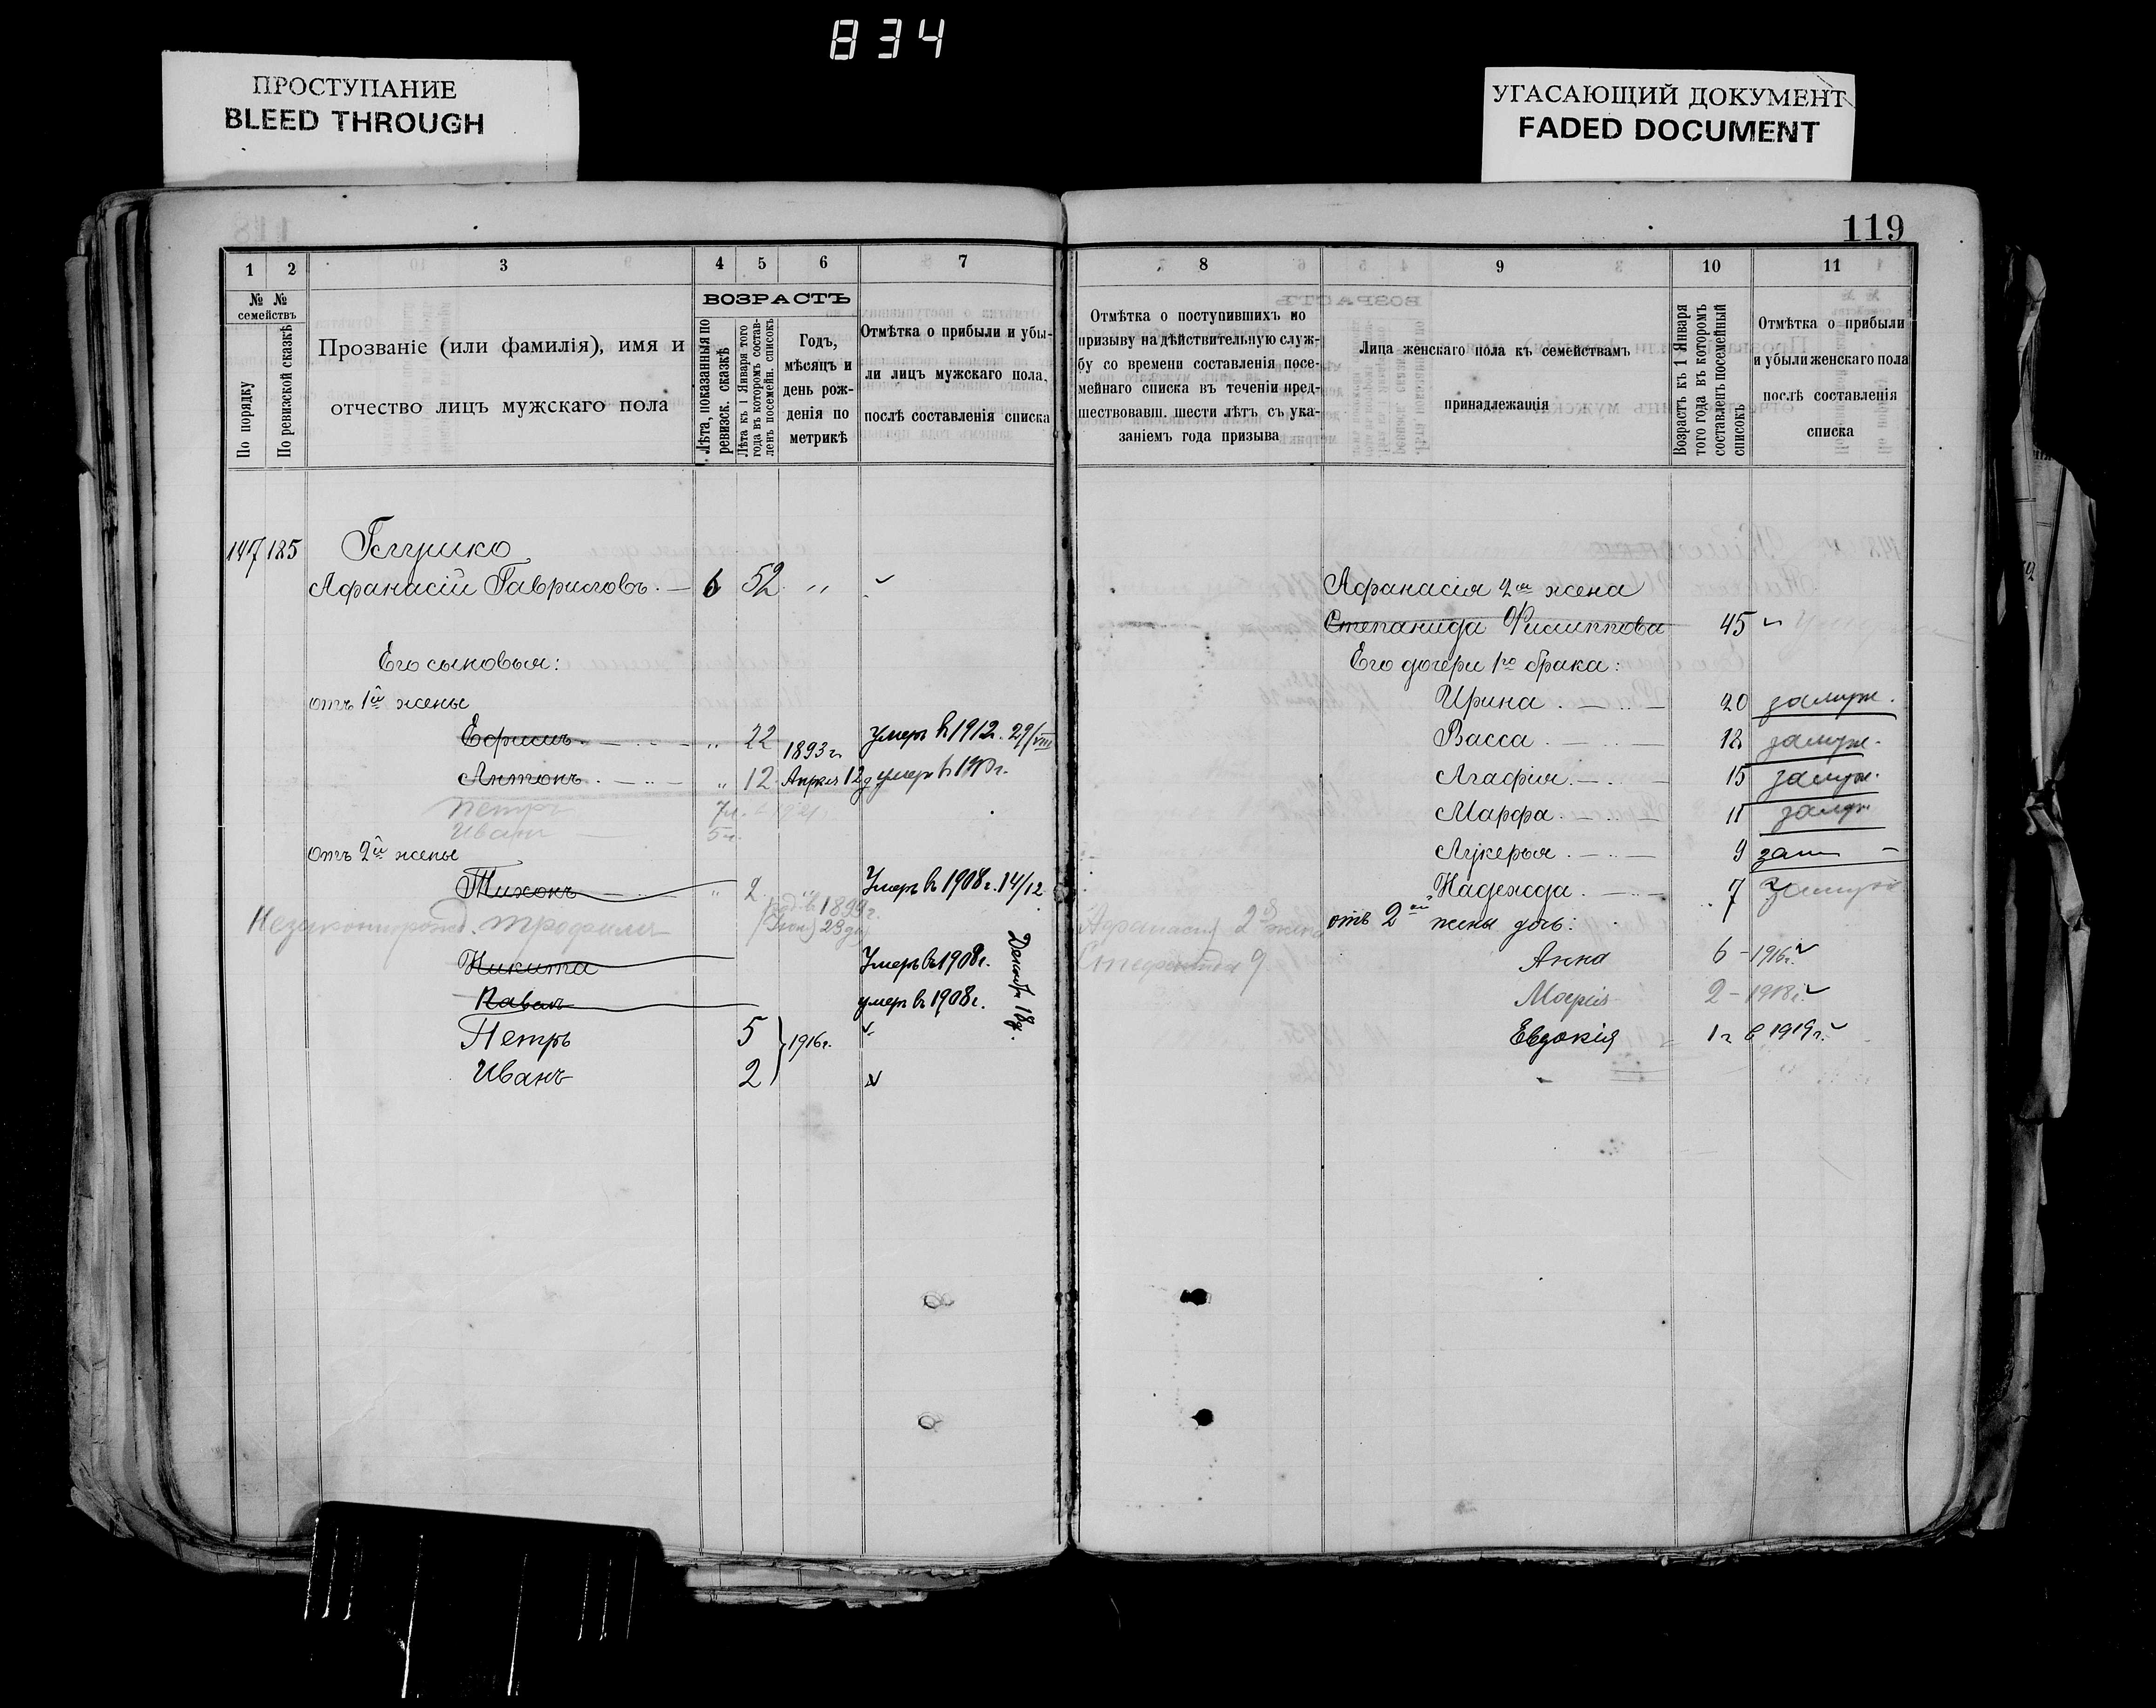 834
ПРОСТУПАНИЕ
BLEED THROUGH
УГАСАЮЩИЙ ДОКУМЕНТ
FADED DOCUMENT
119
1 2 3 4 5 6 7
№ № семействъ
По порядку
По ревизской сказкѣ
Прозваніе (или фамилія), имя и
отчество лицъ мужскаго пола
ВОЗРАСТЪ
Лѣта, показанныя по ревизск. сказкѣ
Лѣта къ 1 Января того года въ которомъ составленъ посемейн. списокъ
Годъ,
мѣсяцъ и
день рож-
денія по
метрикѣ
Отмѣтка о прибыли и убы-
ли лицъ мужскаго пола,
послѣ составленія списка
8 9 10 11
Отмѣтка о поступившихъ по
призыву на дѣйствительную служ-
бу со времени составленія посе-
мейнаго списка въ теченіи пред-
шествовавш. шести лѣтъ съ ука-
заніемъ года призыва
Лица женскаго пола къ семействамъ
принадлежащія
Возрастъ къ 1 Января
того года въ которомъ
составленъ посемейный
списокъ
Отмѣтка о прибыли
и убыли женскаго пола
послѣ составленія
списка
147 185
Афанасій Гавриловъ. — 6 52 "
Его сыновья:
отъ 1й жены
Ефимъ " 22 Умеръ в 1912г. 29/VIII
1893 г.
Антонъ " 12 Апреля 12 д умеръ в
Петръ 7 л. 1921
Иванъ 5 л.
отъ 2й жены
Тихонъ " 2 Умеръ в 1908 г. 14/12
род. в 1899 г.
Незаконнорожд. Трофимъ 23 дн
Никита Умеръ в 1908 г.
Декабря 18 д.
Павелъ умеръ в 1908 г.
Петръ 5
1916 г.
Иванъ 2
Афанасія 2й жена
Степанида Филиппова 45 Умерла
Его дочери 1го брака:
Ирина 20 замуж.
Васса 18 замуж.
Агафія 15 замуж.
Марфа 11 замуж
Лукерья 9 зам
Надежда 7 Замужъ
Афанасія 2я жена
отъ 2ой жены дочь:
Анна 6 - 1916 г.
Марія 2 - 1918 г.
Евдокія 1 г в 1919 г.